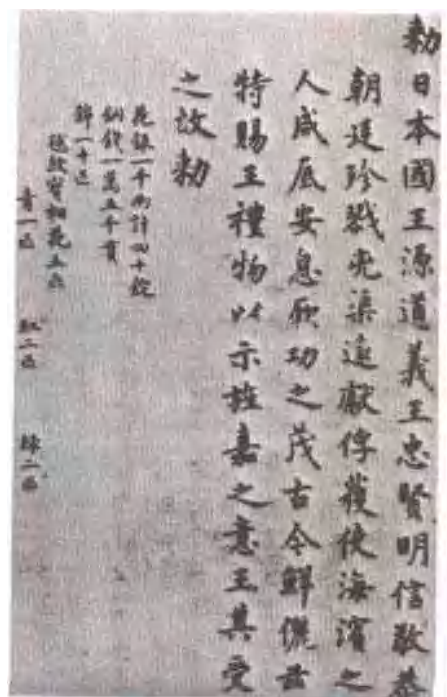 勅日本國王源道義王忠賢明信敬恭
朝廷殄戮兇渠遠獻俘獲使海濱之
人咸厎安息厥功之茂古今鮮儷茲
特賜王禮物以示旌嘉之意王其受
之故勅
花銀一千兩計四十錠
銅錢一萬五千貫
錦一十匹
紵絲寶相花五匹
青一匹 紅二匹 綠二匹